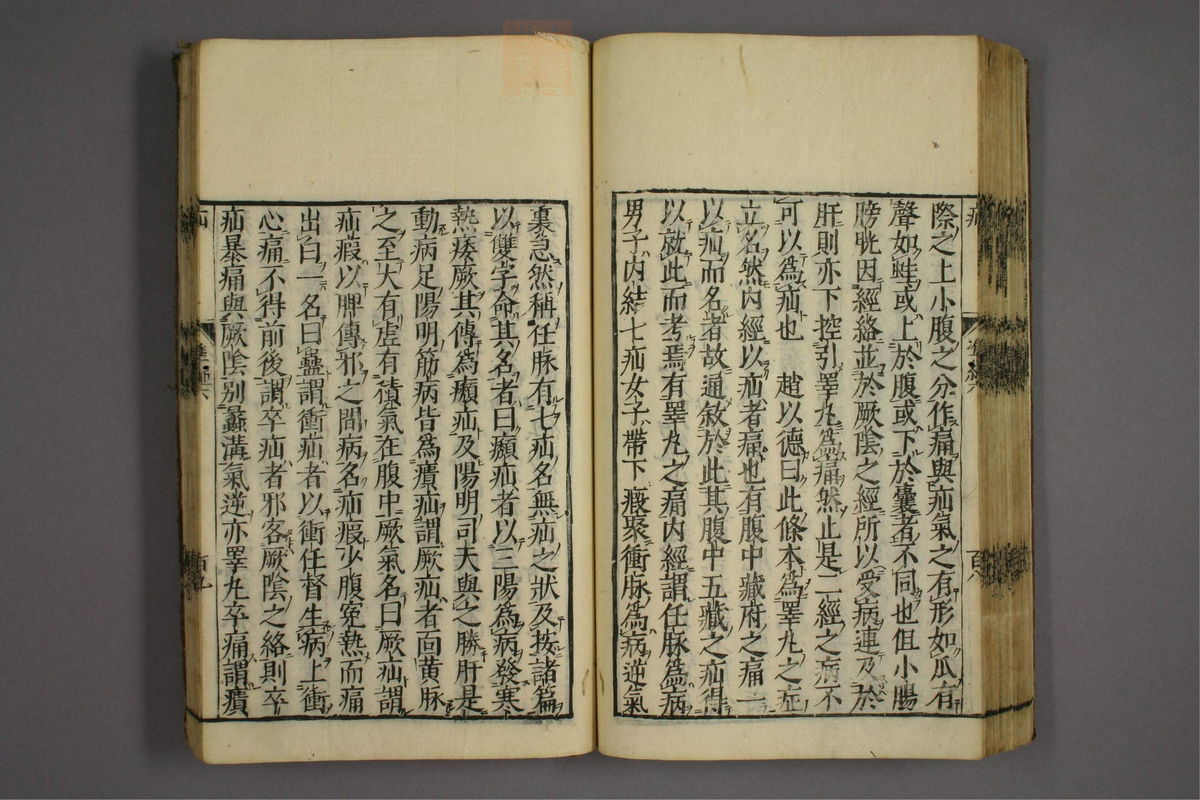 際之上小腹之分作痛與疝氣之有形如瓜有
聲如蛙或上於腹或下於囊者不同也但小腸
膀胱因經絡並於厥陰之經所以受病連及於
肝則亦下控引睪丸爲痛然止是二經之病不
可以爲疝也 趙以德曰此條本爲睪丸之症
立名然内經以疝者痛也有腹中藏府之痛一
以疝而名者故通敘於此其腹中五藏之疝得
以就此而考焉有睪丸之痛内經謂任脉爲病
男子内結七疝女子帶下瘕聚衝脉爲病逆氣
裏急然稱任脉有七疝名無疝之狀及按諸篇
以雙字命其名者曰㿗疝者以三陽爲病發寒
熱痿厥其傳爲㿗疝及陽明司天與之勝肝是
動病足陽明筋病皆爲㿉疝謂厥疝者面黄脉
之至大有虚有積氣在腹中厥氣名曰厥疝謂
疝瘕以脾傳邪之間病名疝瘕少腹寃熱而痛
出白一名曰蠱謂衝疝者以衝任督生病上衝
心痛不得前後謂卒疝者邪客厥陰之絡則卒
疝暴痛與厥陰别蠡溝氣逆亦睪丸卒痛謂㿉
百九